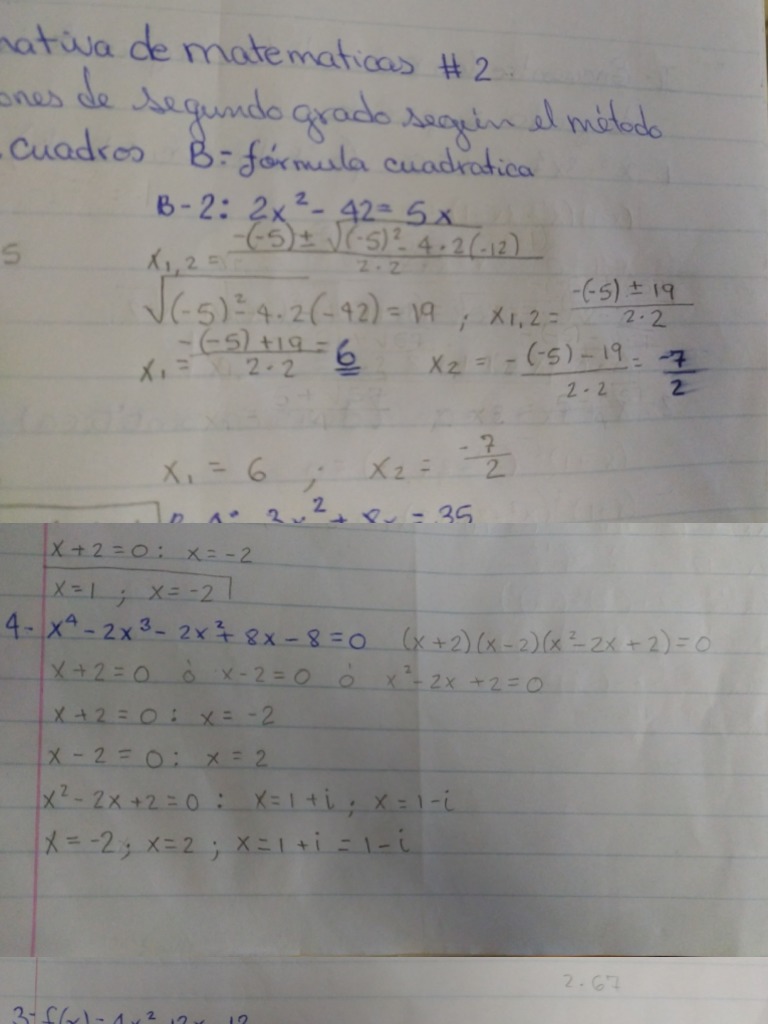 nativa de matematicas # 2
ones de segundo grado según el método
. cuadros B= fórmula cuadratica
B-2: 2x² - 42 = 5x
5
x₁,₂ = -(-5) ± √(-5)² - 4·2(-12) / 2·2
√(-5)² - 4·2(-42) = 19 ; x₁,₂ = -(-5) ± 19 / 2·2
x₁ = -(-5) + 19 / 2·2 = 6 x₂ = -(-5) - 19 / 2·2 = -7/2
x₁ = 6 ; x₂ = -7/2
x² + 8x = 35
x + 2 = 0 : x = -2
x = 1 ; x = -2
4- x⁴ - 2x³ - 2x² + 8x - 8 = 0 (x + 2)(x - 2)(x² - 2x + 2) = 0
x + 2 = 0 ó x - 2 = 0 ó x² - 2x + 2 = 0
x + 2 = 0 : x = -2
x - 2 = 0 : x = 2
x² - 2x + 2 = 0 : x = 1 + i ; x = 1 - i
x = -2 ; x = 2 ; x = 1 + i = 1 - i
2.67
3- f(x) = 4x²